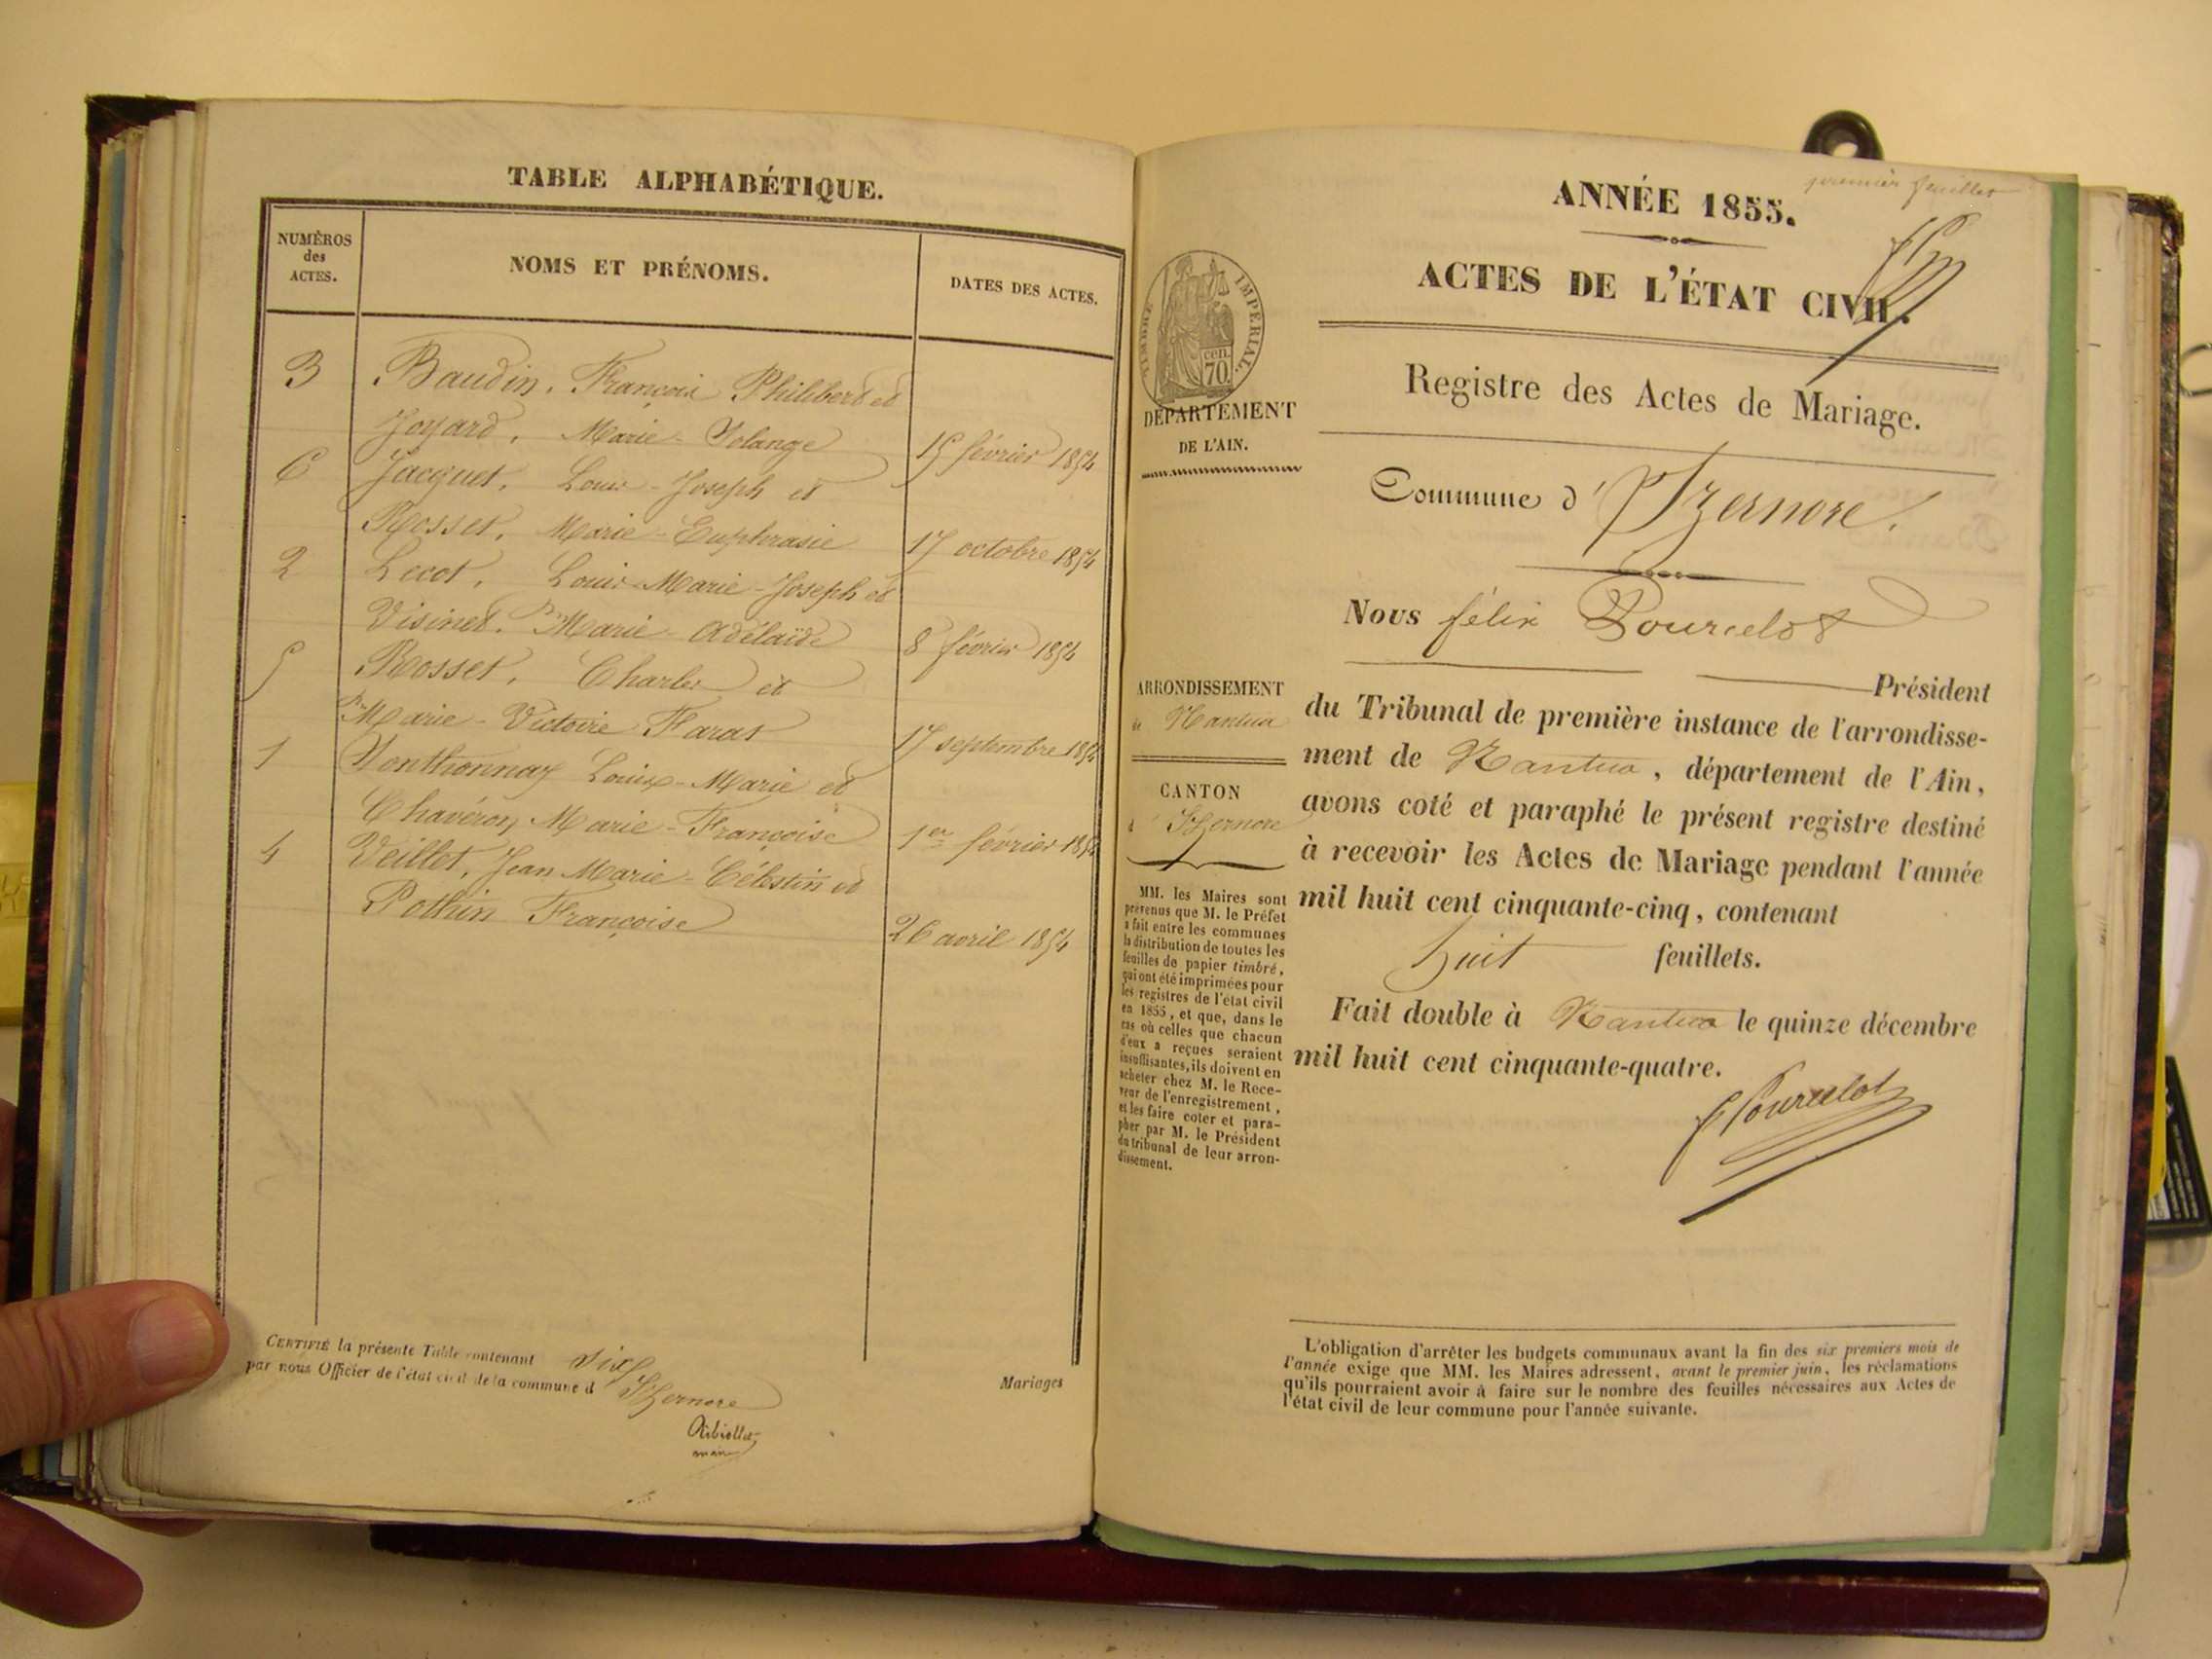 TABLE ALPHABÉTIQUE.
NUMÉROS
des
ACTES.
NOMS ET PRÉNOMS.
DATES DES ACTES.
3 Baudin, François Philibert et
Joyard, Marie-Solange 15 février 1854
6 Jacquet, Louis-Joseph et
Rosset, Marie-Euphrasie 17 octobre 1854
2 Lecot, Louis-Marie-Joseph et
Visinet, Marie-Adélaïde 8 février 1854
5 Rosset, Charles et
Marie-Victoire Faras 17 septembre 1854
1 Louis-Marie et
Chavéron, Marie-Françoise 1er février 1854
4 Veillet, Jean Marie-Célestin et
Pothin Françoise 26 avril 1854
CERTIFIÉ la présente Table contenant six Mariages
par nous Officier de l'état civil de la commune d'Izernore
maire
ANNÉE 1855.
premier feuillet
ACTES DE L'ÉTAT CIVIL.
TIMBRE IMPÉRIAL.
70 cen.
DÉPARTEMENT
DE L'AIN.
Registre des Actes de Mariage.
Commune d'Izernore.
Nous félix Pourcelot
Président
ARRONDISSEMENT
de Nantua
CANTON
d'Izernore
du Tribunal de première instance de l'arrondisse-
ment de Nantua, département de l'Ain,
avons coté et paraphé le présent registre destiné
à recevoir les Actes de Mariage pendant l'année
mil huit cent cinquante-cinq, contenant
huit feuillets.
Fait double à Nantua le quinze décembre
mil huit cent cinquante-quatre.
F Pourcelot
MM. les Maires sont
prévenus que M. le Préfet
a fait entre les communes
la distribution de toutes les
feuilles de papier timbré,
qui ont été imprimées pour
les registres de l'état civil
en 1855, et que, dans le
cas où celles que chacun
d'eux a reçues seraient
insuffisantes, ils doivent en
acheter chez M. le Rece-
veur de l'enregistrement,
et les faire coter et para-
pher par M. le Président
du tribunal de leur arron-
dissement.
L'obligation d'arrêter les budgets communaux avant la fin des six premiers mois de
l'année exige que MM. les Maires adressent, avant le premier juin, les réclamations
qu'ils pourraient avoir à faire sur le nombre des feuilles nécessaires aux Actes de
l'état civil de leur commune pour l'année suivante.